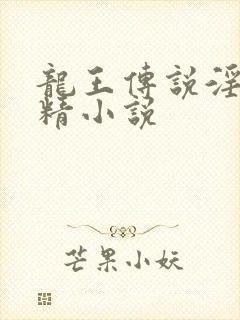 龍王傳說淫
精小說
芒果小妖